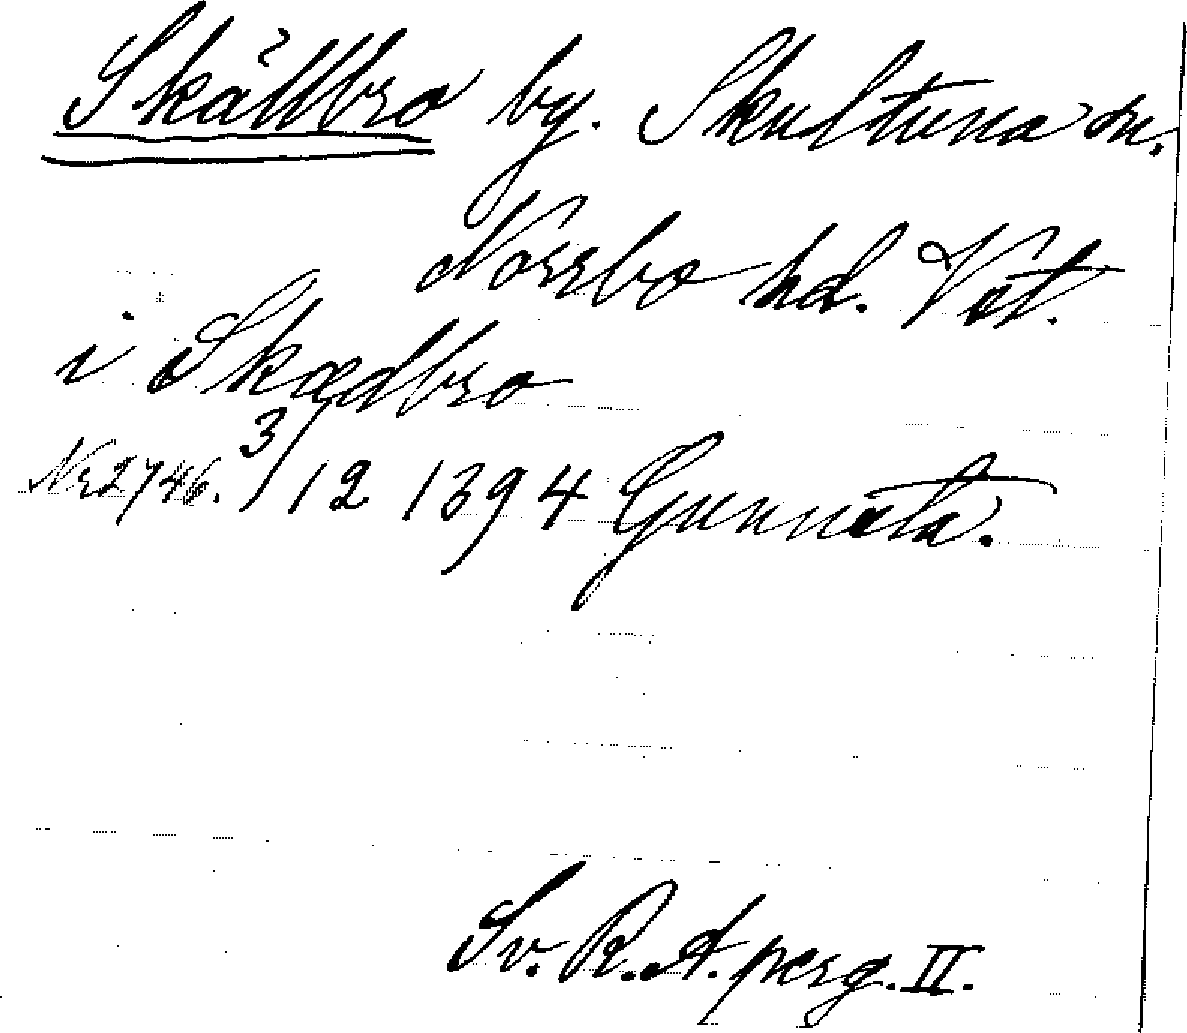 Skällbro by. Skultuna sn.
Norrbo hd. Vst.
i Skædbro
Nr 2746. 3/12 1394 Gunnata.
Sv. R. A. perg. II.